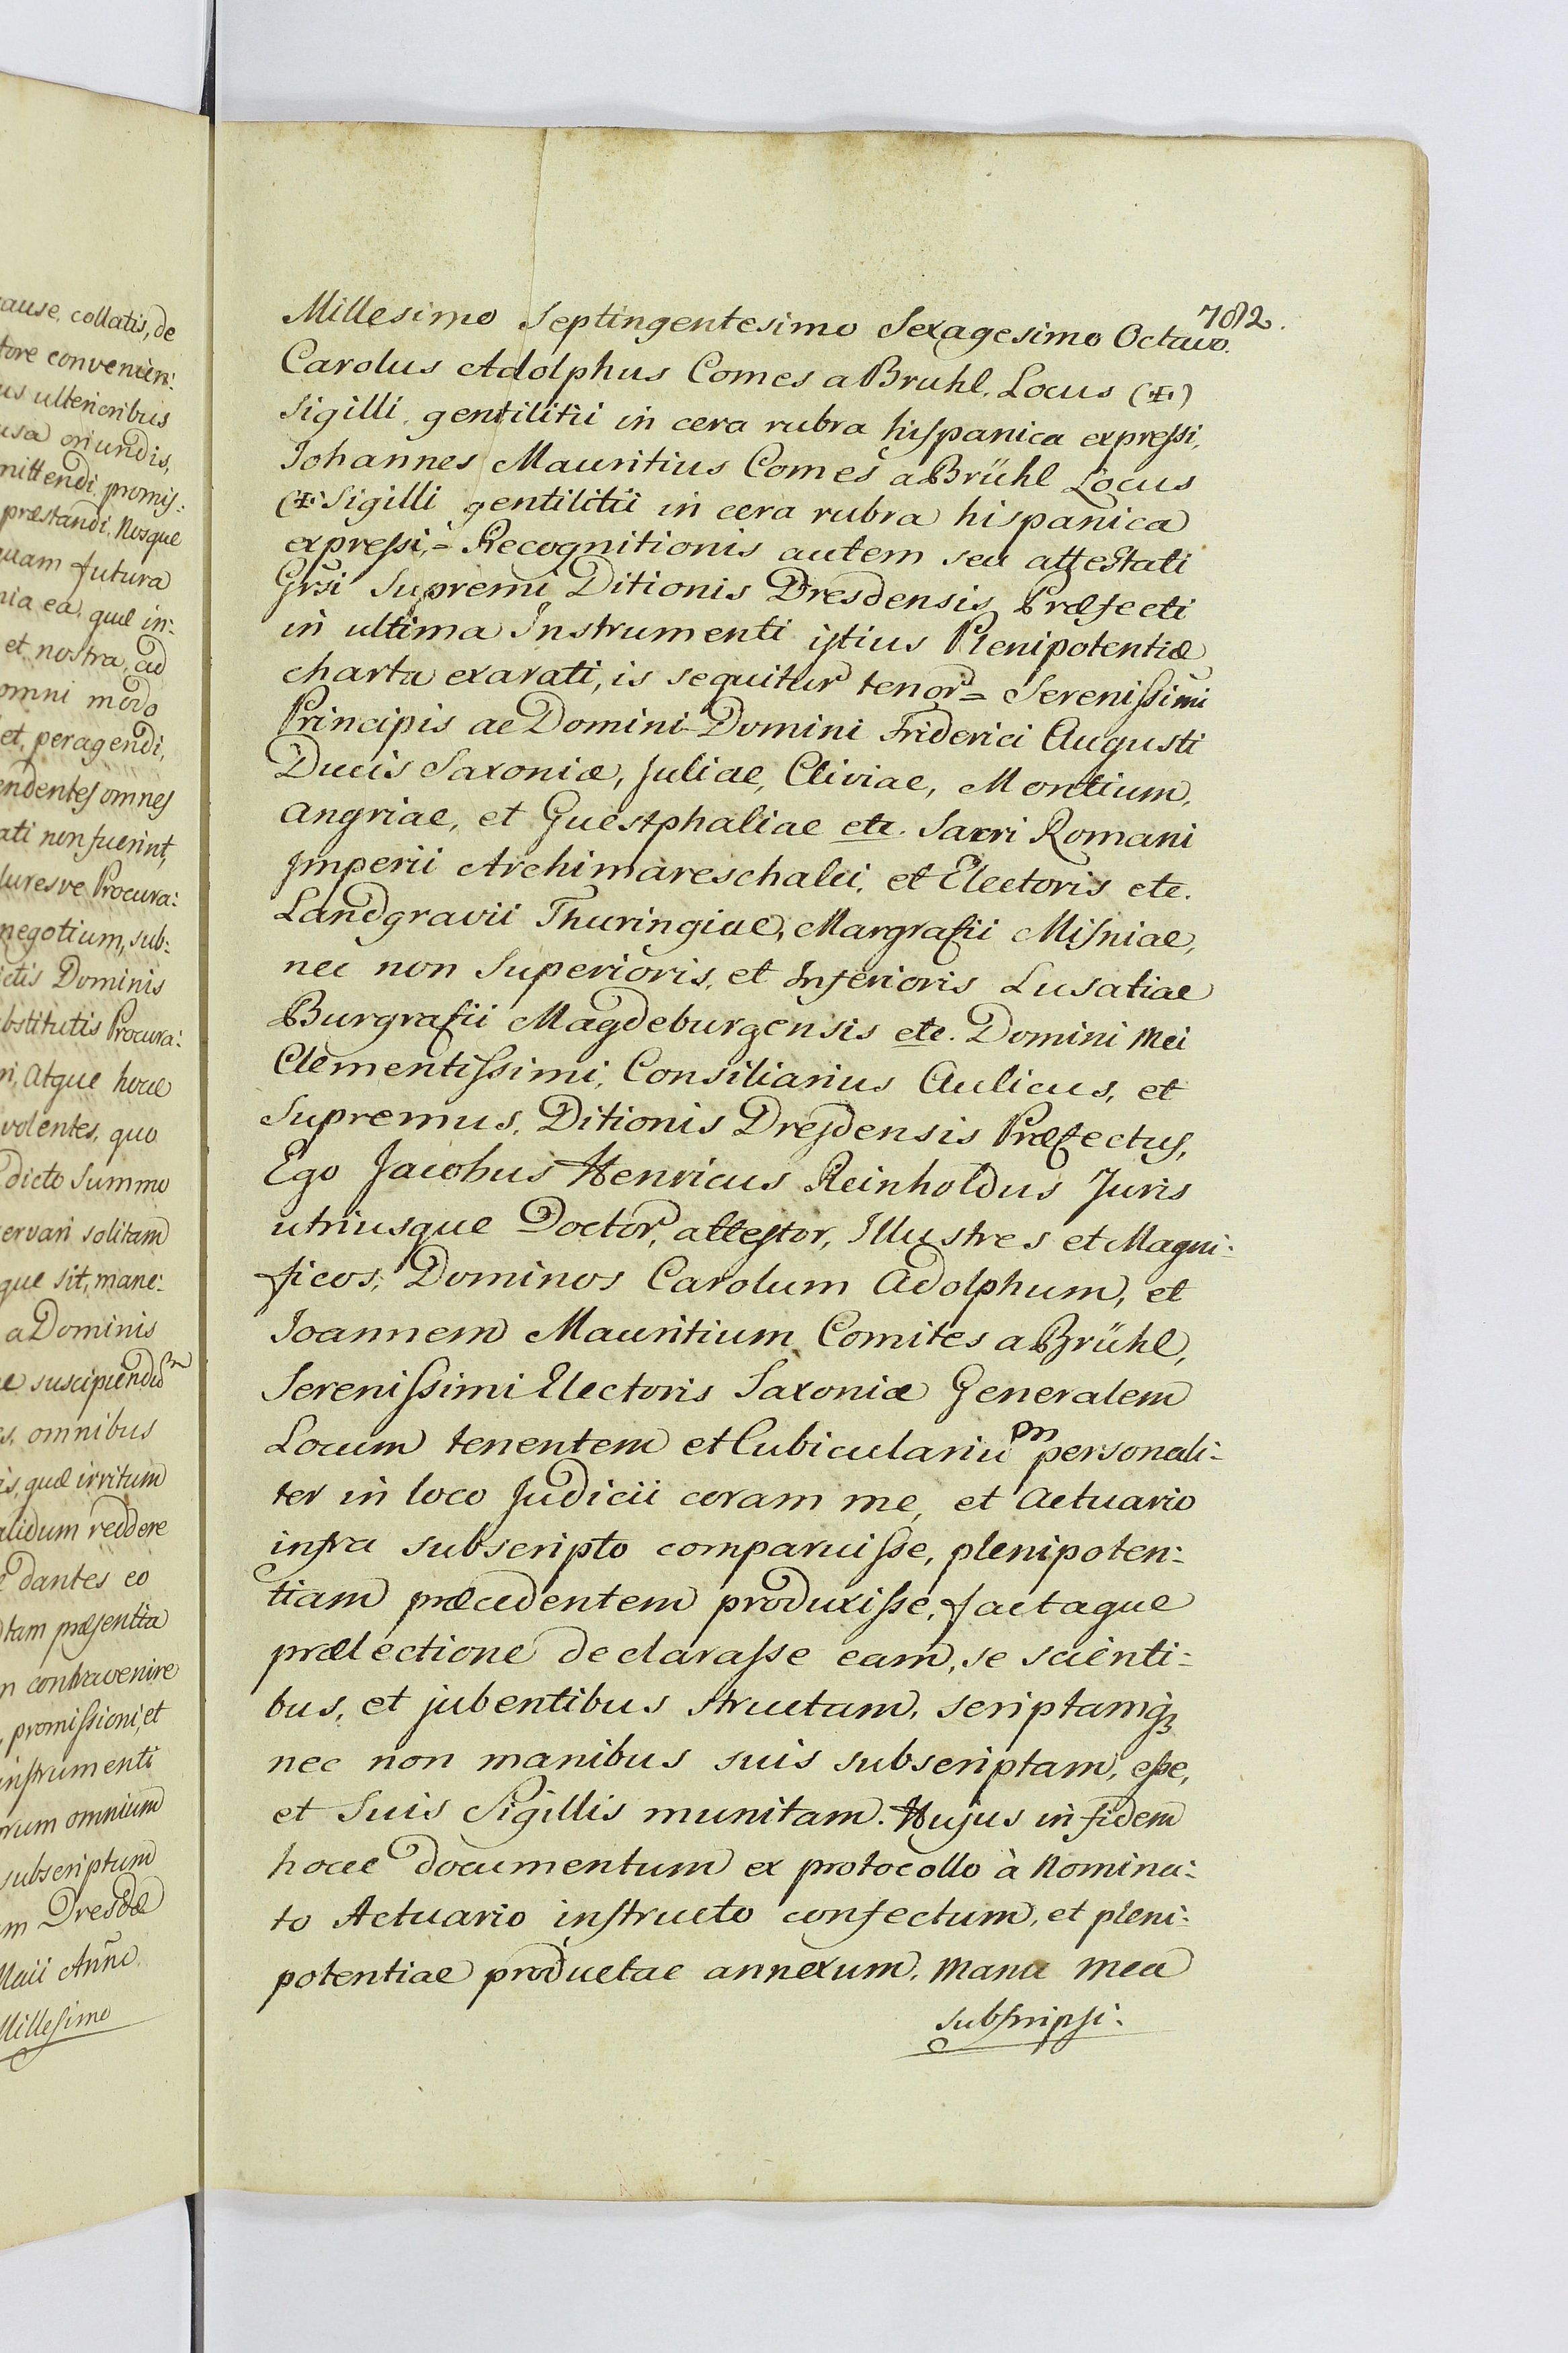 cause, collatis, de
tore convenien:
us ulterioribus
usa oriundis,
mittendi promis:
præstandi. Nosque
quam futura
nia ea, quæ in:
et nostra, ad
omni modo
et, peragendi,
endentes omnes
ati non fuerint,
luresve Procura:
negotium, sub:
ictis Dominis
bstitutis Procura:
ri, Atque hocce
volentes, quo
dicto Summo
ervari solitam
que sit, mane:
a Dominis
e suscipiendum
s, omnibus
is, quæ irritum
alidum reddere
dantes eo
tam præsentia
n contravenire
, promissioni, et
instrumenti
rum omnium
subscriptum
m Dresdæ
Maii Anno
Millesimo
782.
Millesimo Septingentesimo Sexagesimo Octavo.
Carolus Adolphus Comes a Bruhl. Locus (+)
Sigilli gentilitii in cera rubra hispanica expressi,
Iohannes Mauritius Comes a Brühl Locus
(+ Sigilli gentilitii in cera rubra hispanica
expressi,= Recognitionis autem seu attestati
Grsi Supremi Ditionis Dresdensis Præfecti
in ultima Instrumenti istius Plenipotentiæ
charta exarati, is sequitur tenor= Serenissimi
Principis ac Domini Domini Friderici Augusti
Ducis Saxoniæ, Juliae, Cliviae, Montium,
Angriae, et Guestphaliae etc. Sacri Romani
Imperii Archimareschalci, et Electoris etc.
Landgravii Thuringiae, Margrafii Misniae,
nec non Superioris, et Inferioris Lusatiae
Burgrafii Magdeburgensis etc. Domini Mei
Clementissimi, Consiliarius Aulicus, et
Supremus, Ditionis Dresdensis Præfectus,
Ego Jacobus Henricus Reinholdus Juris
utriusque Doctor, attestor, Illustres et Magni:
ficos, Dominos Carolum Adolphum, et
Ioannem Mauritium Comites a Brühl,
Serenissimi Electoris Saxoniæ Generalem
Locum tenentem et Cubicularium personali:
ter in loco Judicii coram me, et Actuario
infra subscripto comparuisse, plenipoten:
tiam præcedentem produxisse, factaque
prælectione declarasse eam, se scienti:
bus, et jubentibus structam, scriptamq3
nec non manibus suis subscriptam, esse,
et Suis Sigillis munitam. Hujus in fidem
hocce documentum ex protocollo à Nomina:
to Actuario instructo confectum, et pleni:
potentiae productae annexum, manu mea
subscripsi: